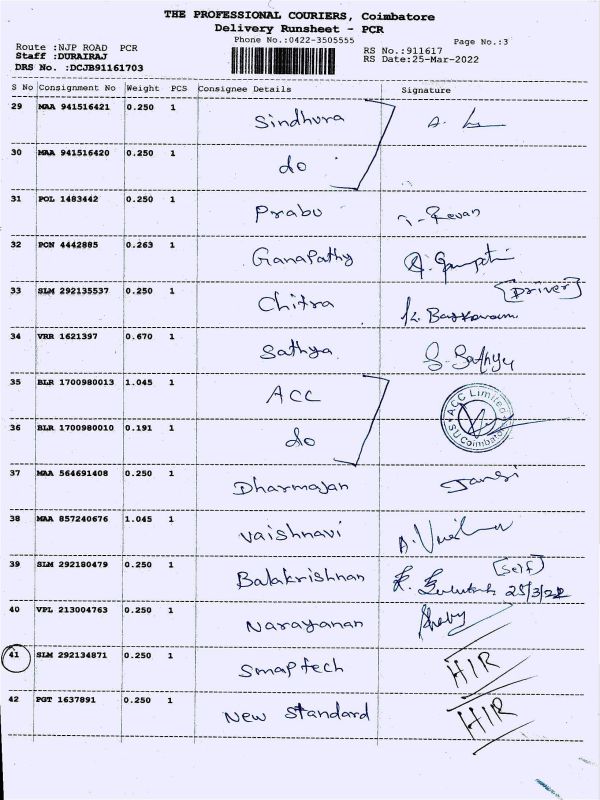 THE PROFESSIONAL COURIERS, Coimbatore
Delivery Runsheet - PCR
Phone No.:0422-3505555
Page No.:3
Route :NJP ROAD PCR
Staff :DURAIRAJ
DRS No. :DCJB91161703
RS No.:911617
RS Date:25-Mar-2022
S No Consignment No Weight PCS Consignee Details Signature
29 MAA 941516421 0.250 1 Sindhura
30 MAA 941516420 0.250 1 do
31 POL 1483442 0.250 1 Prabu
32 PCN 4442885 0.263 1 Ganapathy
[Driver]
33 SLM 292135537 0.250 1 Chitra
34 VRR 1621397 0.670 1 Sathya S. Sathya
35 BLR 1700980013 1.045 1 ACC
ACC Limited
36 BLR 1700980010 0.191 1 do
Coimbatore
37 MAA 564691408 0.250 1 Dharmajan Jansi
38 MAA 857240676 1.045 1 Vaishnavi
[Self]
39 SLM 292180479 0.250 1 Balakrishnan 25/3/22
40 VPL 213004763 0.250 1 Narayanan
41 SLM 292134871 0.250 1 Smaptech HIR
42 PGT 1637891 0.250 1 New Standard HIR